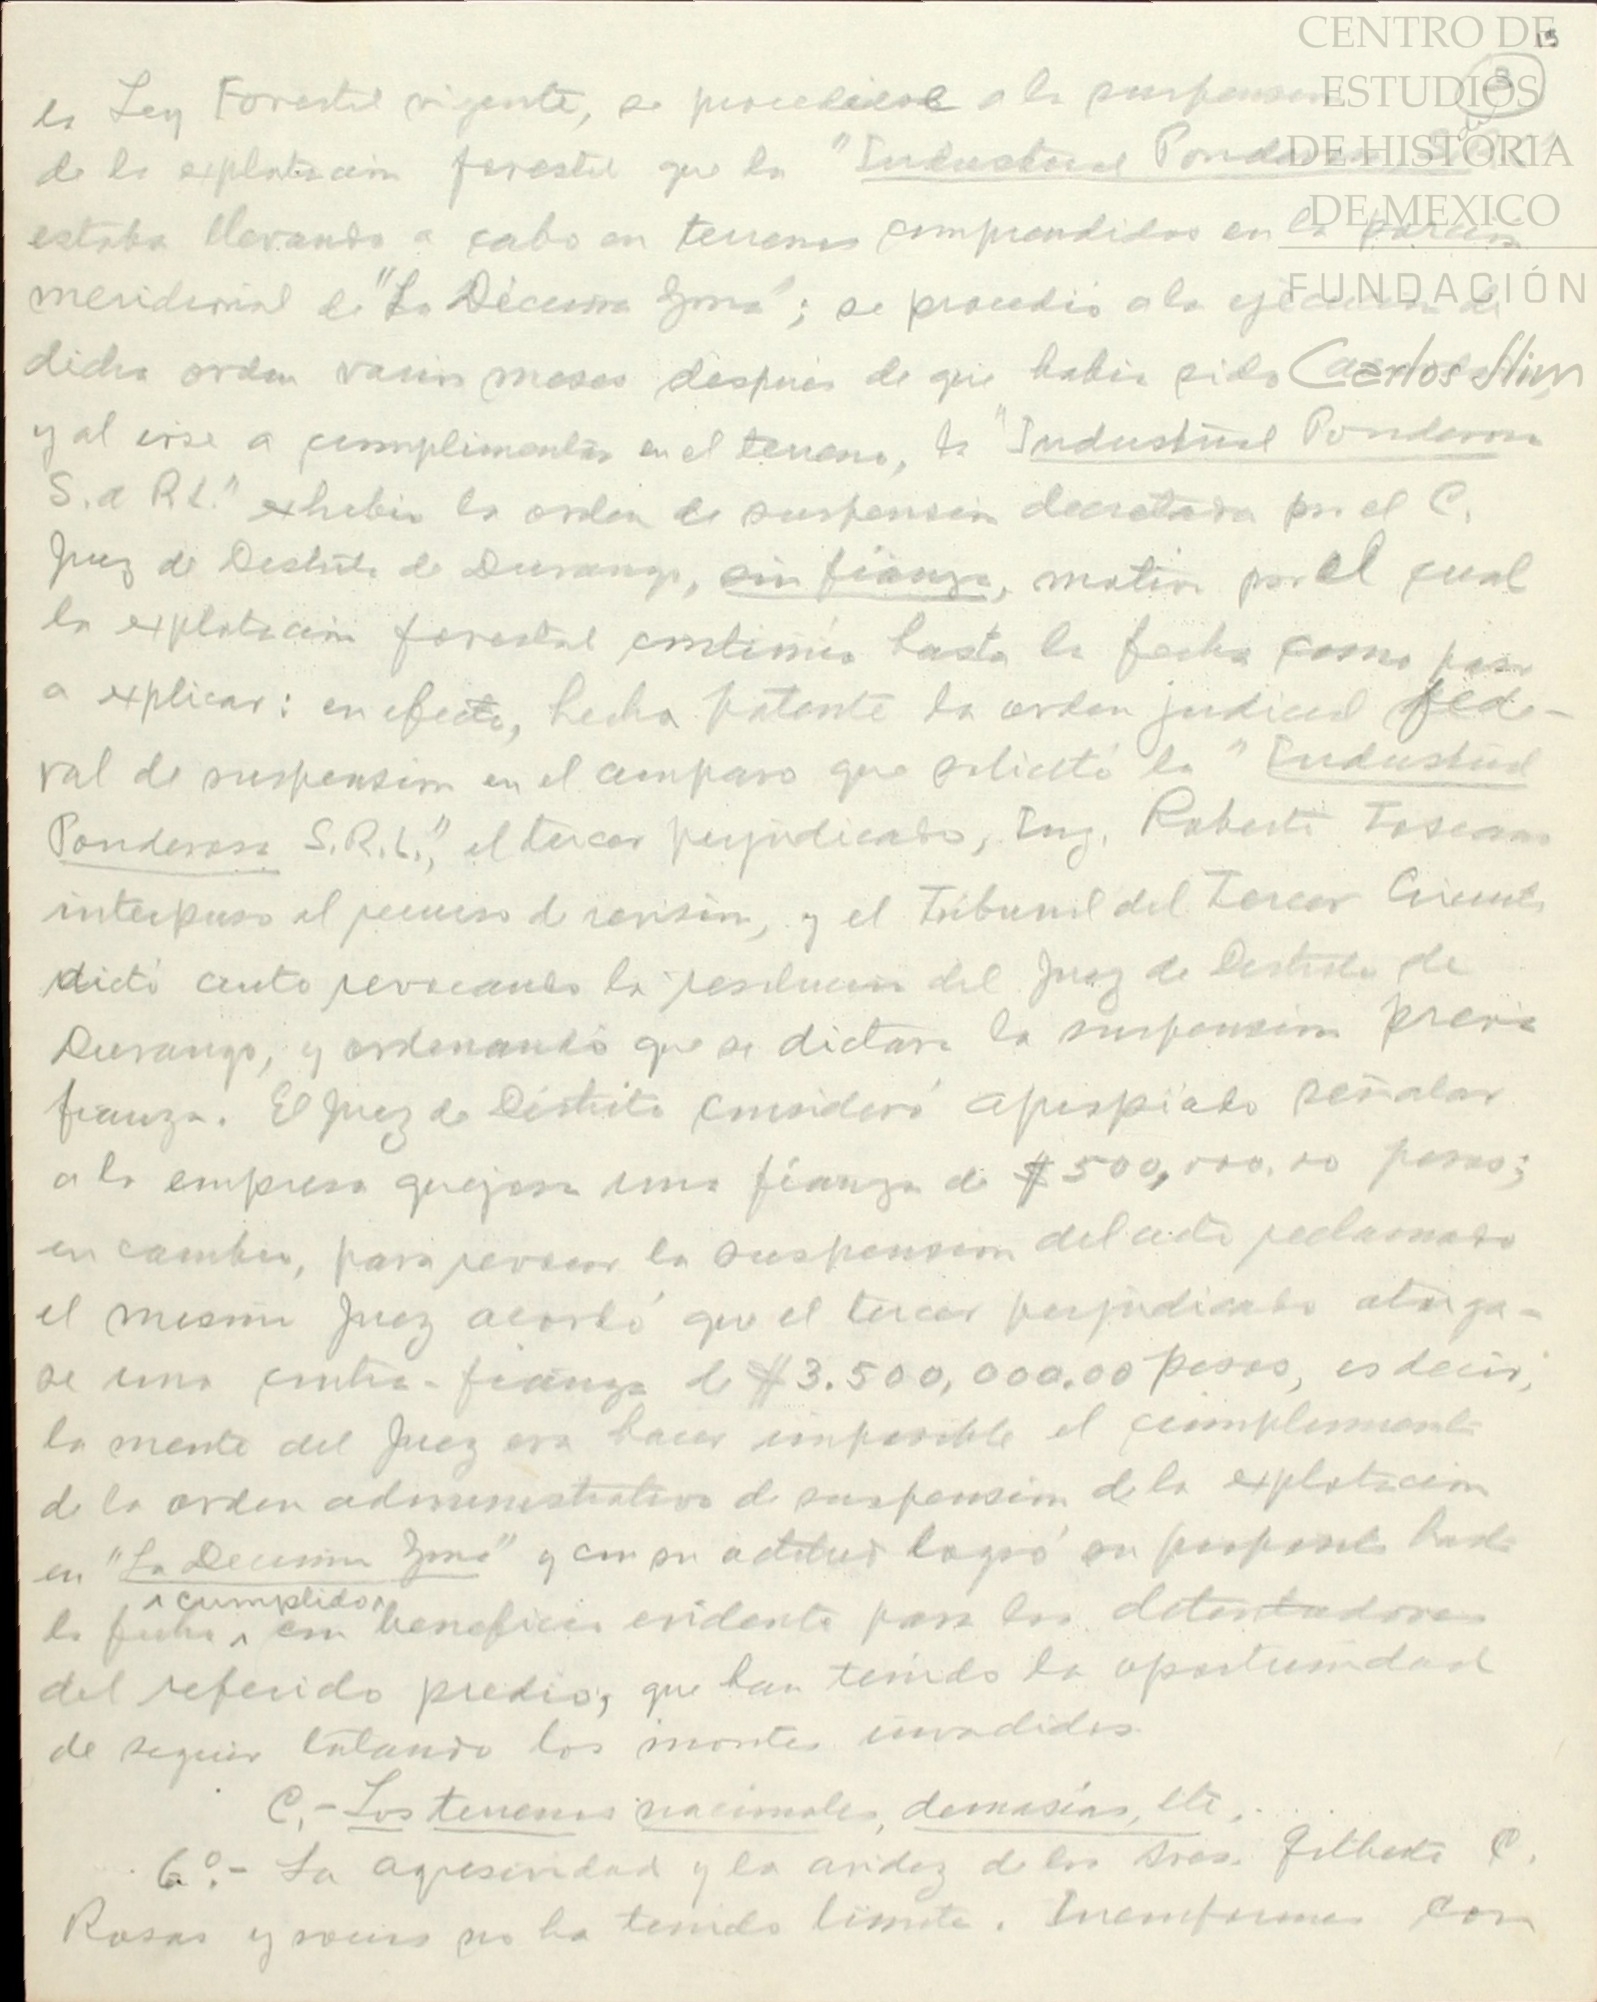 CENTRO DE
ESTUDIOS
DE HISTORIA
DE MEXICO
FUNDACIÓN
Carlos Slim
15
la Ley Forestal vigente, se procediese a la suspensión
de la explotación forestal que la "Industrial Ponderosa
estaba llevando a cabo en terrenos comprendidos en la porción
meridional de "La Décima Zona"; se procedió a la ejecución de
dicha orden varios meses después de que había sido
y al irse a cumplimentar en el terreno, la "Industrial Ponderosa
S. de R.L." exhibió la orden de suspensión decretada por el C.
Juez de Distrito de Durango, sin fianza, motivo por el cual
la explotación forestal continuó hasta la fecha como paso
a explicar: en efecto, hecha patente la orden judicial fede-
ral de suspensión en el amparo que solicitó la "Industrial
Ponderosa S.R.L.", el tercer perjudicado, Ing. Roberto Toscano
interpuso el recurso de revisión, y el Tribunal del Tercer Circuito
dictó auto revocando la resolución del Juez de Distrito de
Durango, y ordenando que se dictara la suspensión previa
fianza. El Juez de Distrito consideró apropiado señalar
a la empresa quejosa una fianza de $500,000.00 pesos;
en cambio, para revocar la suspensión del acto reclamado
el mismo Juez acordó que el tercer perjudicado otorga-
se una contra-fianza de $3.500,000.00 pesos, es decir,
la mente del Juez era hacer imposible el cumplimiento
de la orden administrativa de suspensión de la explotación
en "La Decima Zona" y con su actitud logró su proposito hasta
cumplido
la fecha con beneficio evidente para los detentadores
del referido predio, que han tenido la oportunidad
de seguir talando los montes invadidos.
C.- Los terrenos nacionales, demasías, etc.
6o.- La agresividad y la avidez de los Sres. Gilberto C.
Rosas y socios no ha tenido limite. Inconformes con